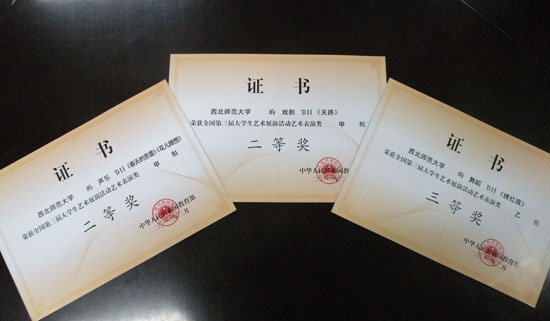 证书
西北师范大学 的 声乐 节目《春天的芭蕾》《花儿随想》
荣获全国第三届大学生艺术展演活动艺术表演类 甲 组
二等奖
中华人民共和国教育部
月
证书
西北师范大学 的 戏剧 节目《天路》
荣获全国第三届大学生艺术展演活动艺术表演类 甲 组
二等奖
中华人民共和国教
证书
西北师范大学 的 舞蹈 节目《绣红旗》
荣获全国第三届大学生艺术展演活动艺术表演类 乙 组
三等奖
中华人民共和国教育部
月